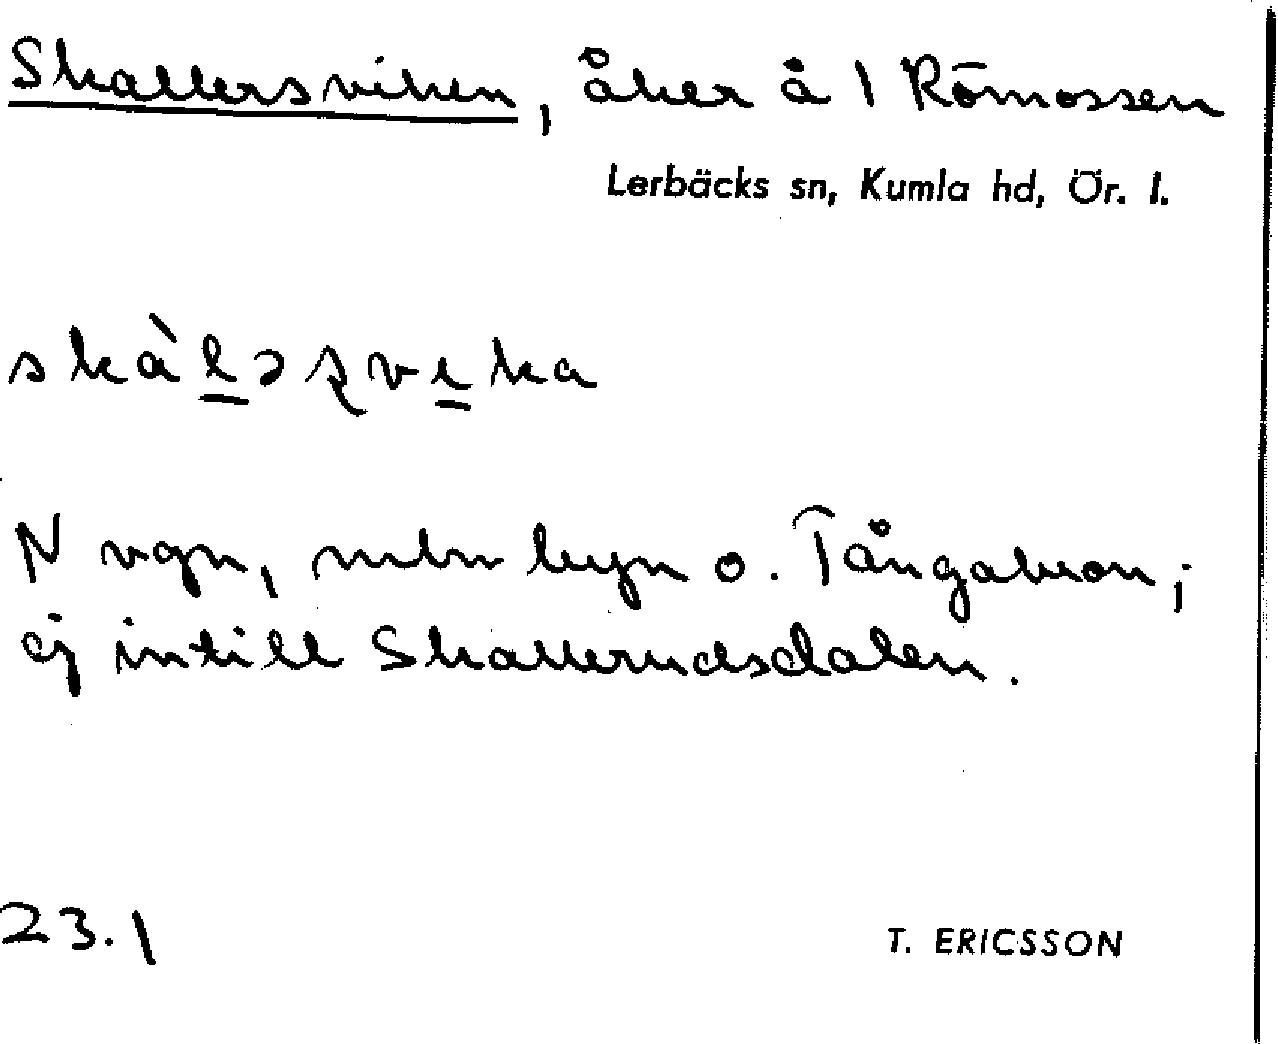 Skallersviken, åker å 1 Rōmossen
Lerbäcks sn, Kumla hd, Ör. l.
skàl̲əʂvi̲ka
N vgn, mln byn o. Tångabron;
ej intill Skallerudsdalen.
23.1
T. ERICSSON